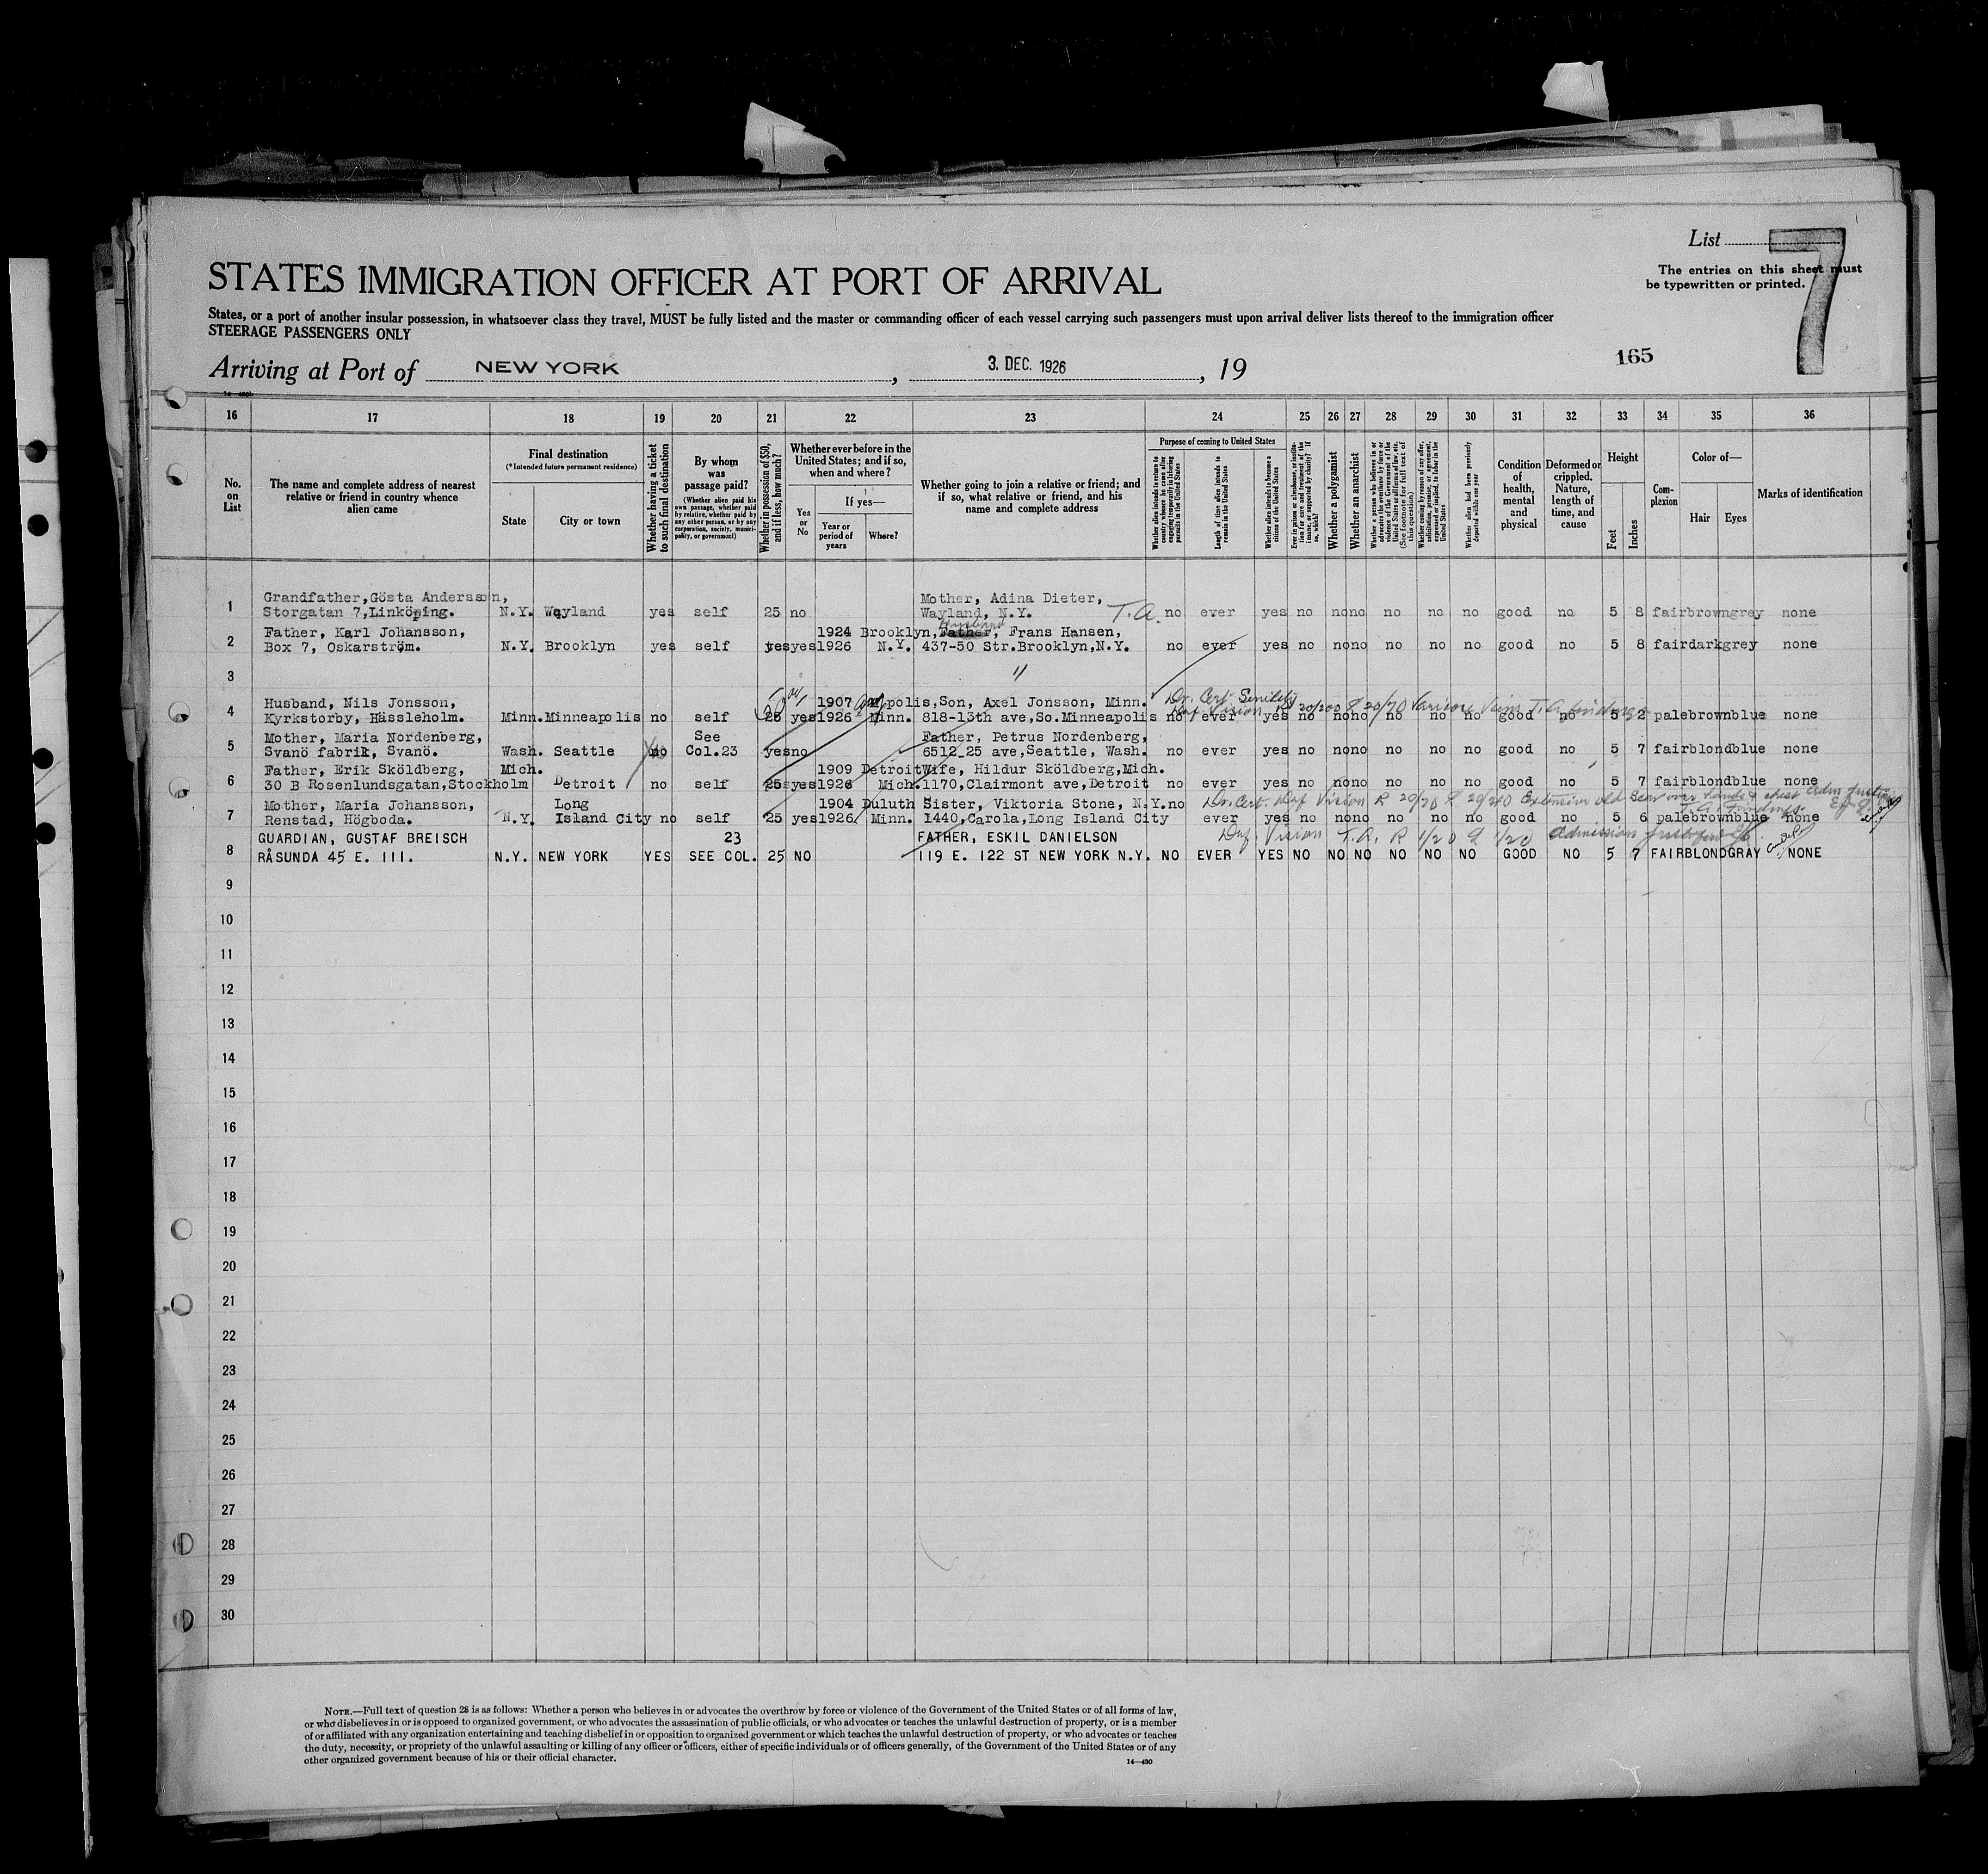 List 7
STATES IMMIGRATION OFFICER AT PORT OF ARRIVAL
The entries on this sheet must
be typewritten or printed.
States, or a port of another insular possession, in whatsoever class they travel, MUST be fully listed and the master or commanding officer of each vessel carrying such passengers must upon arrival deliver lists thereof to the immigration officer
STEERAGE PASSENGERS ONLY
165
Arriving at Port of NEW YORK, 3. DEC. 1926, 19
16 17 18 19 20 21 22 23 24 25 26 27 28 29 30 31 32 33 34 35 36
No. on List
The name and complete address of nearest relative or friend in country whence alien came
Final destination
(*Intended future permanent residence)
State
City or town
Whether having a ticket to such final destination
By whom was passage paid?
(Whether alien paid his own passage, whether paid by relative, whether paid by any other person, or by any corporation, society, municipality, or government)
Whether in possession of $50, and if less, how much?
Whether ever before in the United States; and if so, when and where?
Yes or No
If yes—
Year or period of years
Where?
Whether going to join a relative or friend; and if so, what relative or friend, and his name and complete address
Purpose of coming to United States
Whether alien intends to return to country whence he came after engaging temporarily in laboring pursuits in the United States
Length of time alien intends to remain in the United States
Whether alien intends to become a citizen of the United States
Ever in prison or almshouse, or institution for care and treatment of the insane, or supported by charity? If so, which?
Whether a polygamist
Whether an anarchist
Whether a person who believes in or advocates the overthrow by force or violence of the Government of the United States or all forms of law, etc. (See footnote for full text of this question)
Whether coming by reason of any offer, solicitation, promise, or agreement, expressed or implied, to labor in the United States
Whether alien had been previously deported within one year
Condition of health, mental and physical
Deformed or crippled. Nature, length of time, and cause
Height
Feet
Inches
Complexion
Color of—
Hair
Eyes
Marks of identification
Grandfather, Gösta Andersson, Mother, Adina Dieter,
1 Storgatan 7, Linköping. N.Y. Wayland yes self 25 no Wayland, N.Y. T.A. no ever yes no no no no no no good no 5 8 fair brown grey none
Husband
Father, Karl Johansson, 1924 Brooklyn, Father, Frans Hansen,
2 Box 7, Oskarström. N.Y. Brooklyn yes self yes yes 1926 N.Y. 437-50 Str. Brooklyn, N.Y. no ever yes no no no no no no good no 5 8 fair dark grey none
3 "
Husband, Nils Jonsson, 50 1907 Mpolis, Son, Axel Jonsson, Minn. Dr. Cert Senility
4 Kyrkstorby, Hässleholm. Minn. Minneapolis no self 25 yes 1926 Minn. 818-13th ave, So. Minneapolis no ever yes no no no no no no good no 5 2 pale brown blue none
Def Vision R 20/200 L 20/70 T.A. findings
Mother, Maria Nordenberg, See Father, Petrus Nordenberg,
5 Svanö fabrik, Svanö. Wash. Seattle no Col.23 yes no 6512_25 ave, Seattle, Wash. no ever yes no no no no no no good no 5 7 fair blond blue none
Father, Erik Sköldberg, Mich. 1909 Detroit Wife, Hildur Sköldberg, Mich.
6 30 B Rosenlundsgatan, Stockholm Detroit no self 25 yes 1926 Mich. 1170, Clairmont ave, Detroit no ever yes no no no no no no good no 5 7 fair blond blue none
Mother, Maria Johansson, Long 1904 Duluth Sister, Viktoria Stone, N.Y. no Dr. Cert. Def Vision R 20/70 L 20/200 Extensive old Scar over hands & chest
7 Renstad, Högboda. N.Y. Island City no self 25 yes 1926 Minn. 1440, Carola, Long Island City ever yes no no no no no no good no 5 6 pale brown blue none
T.A. Findings
GUARDIAN, GUSTAF BREISCH 23 FATHER, ESKIL DANIELSON Def. Vision T.A. R 1/20 L 1/20 Admission
8 RÅSUNDA 45 E. III. N.Y. NEW YORK YES SEE COL. 25 NO 119 E. 122 ST NEW YORK N.Y. NO EVER YES NO NO NO NO NO NO GOOD NO 5 7 FAIR BLOND GRAY NONE
9
10
11
12
13
14
15
16
17
18
19
20
21
22
23
24
25
26
27
28
29
30
NOTE.—Full text of question 28 is as follows: Whether a person who believes in or advocates the overthrow by force or violence of the Government of the United States or of all forms of law,
or who disbelieves in or is opposed to organized government, or who advocates the assassination of public officials, or who advocates or teaches the unlawful destruction of property, or is a member
of or affiliated with any organization entertaining and teaching disbelief in or opposition to organized government or which teaches the unlawful destruction of property, or who advocates or teaches
the duty, necessity, or propriety of the unlawful assaulting or killing of any officer or officers, either of specific individuals or of officers generally, of the Government of the United States or of any
other organized government because of his or their official character.
14—430